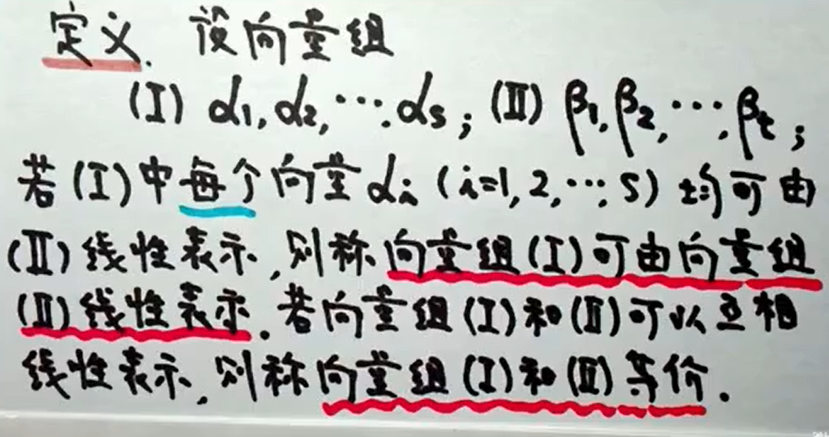 定义. 设向量组
(I) α₁,α₂,…,αₛ; (II) β₁,β₂,…,βₜ;
若(I)中每个向量αᵢ(i=1,2,…,s)均可由
(II)线性表示,则称向量组(I)可由向量组
(II)线性表示.若向量组(I)和(II)可以互相
线性表示,则称向量组(I)和(II)等价.